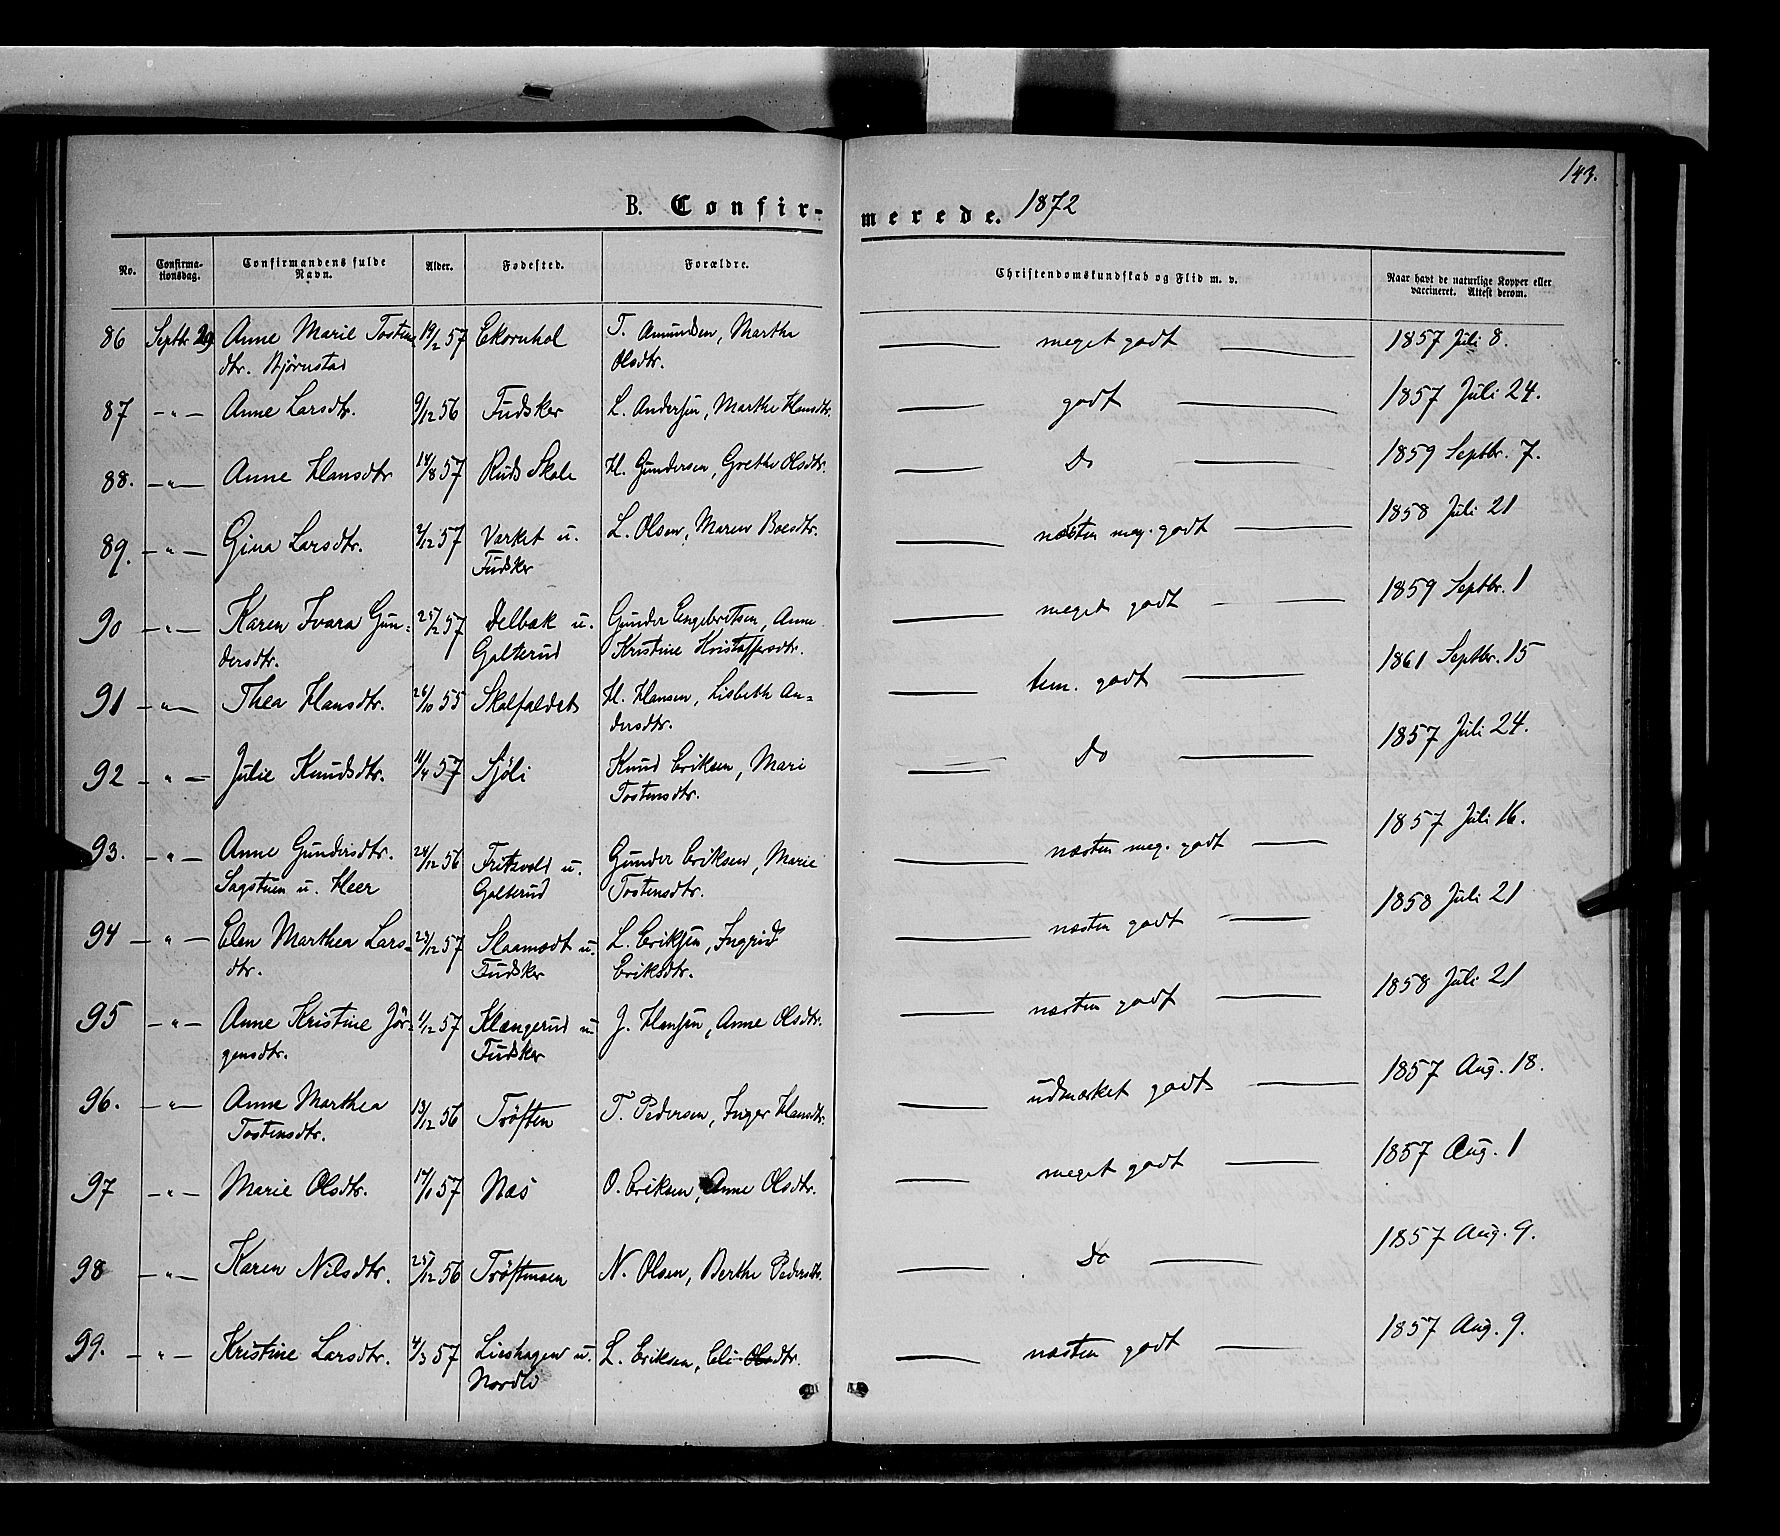 143.
B. Confir- merede. 1872
No. Confirma-tionsdag. Confirmandens fulde Navn. Alder. Fødested. Forældre. Christendomskundskab og Flid m. v. Naar havt de naturlige Kopper eller vaccineret. Attest derom.
86 Septbr 29 Anne Marie Tostens 19/2 57 Ekornhol T. Amundsen, Marthe meget godt 1857 Juli 8.
dtr. Bjørnstad Olsdtr.
87 -"- Anne Larsdtr. 9/12 56 Fudsker L. Andersen, Marthe Hansdtr. godt 1857 Juli 24.
88. -"- Anne Hansdtr 14/8 57 Ruds Skole H. Gundersen, Grethe Olsdtr. Do 1859 Septbr. 7.
89. -"- Gina Larsdtr. 2/12 57 Verket u. L. Olsen, Maren Boesdtr. næsten meg. godt 1858 Juli 21
Fudsker
90 -"- Karen Ivara Gun- 25/2 57 Delbæk u. Gunder Engebretsen, Anne meget godt 1859 Septbr. 1
dersdtr. Galterud Kristine Kristoffersdtr.
91 -"- Thea Hansdtr. 26/10 55 Skalfaldet H. Hansen, Lisbeth An- tem. godt 1861 Septbr. 15
dersdtr.
92 -"- Julie Knudsdtr. 11/4 57 Sjøli Knud Eriksen, Mari Do 1857 Juli 24.
Tostensdtr.
93. -"- Anne Gundersdtr. 24/12 56 Fritzvold u. Gunder Eriksen, Marie næsten meg. godt 1857 Juli 16.
Sagstuen u. Heer Galterud Tostensdtr.
94 -"- Elen Marthea Lars- 29/12 57 Slaamodt u. L. Eriksen, Ingrid næsten godt 1858 Juli 21
dtr. Fudsker Eriksdtr.
95 -"- Anne Kristine Jør- 1/12 57 Klængerud u. J. Hansen, Anne Olsdtr. næsten godt 1858 Juli 21
gensdtr. Fudsker
96. -"- Anne Marthea 13/12 56 Trøften T. Pedersen, Inger Hansdtr. udmærket godt 1857 Aug. 18.
Tostensdtr.
97 -"- Marie Olsdtr. 17/1 57 Næs O. Eriksen, Anne Olsdtr. meget godt 1857 Aug. 1
98 -"- Karen Nilsdtr. 25/12 56 Trøftensen N. Olsen, Berthe Pedersdtr. Do 1857 Aug. 9.
99. -"- Kristine Larsdtr. 4/3 57 Lieshagen u. L. Eriksen, Eli Olsdtr. næsten godt 1857 Aug. 9.
Nordli